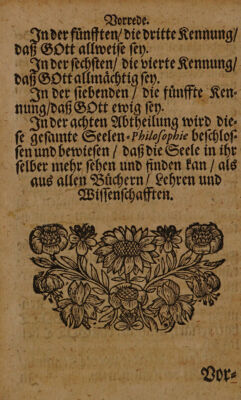 Vorrede.
In der fünfften/ die dritte Kennung/
daß GOtt allweise sey.
In der sechsten/ die vierte Kennung/
daß GOtt allmächtig sey.
In der siebenden/ die fünffte Ken-
nung/ daß GOtt ewig sey.
In der achten Abtheilung wird die-
se gesamte Seelen-Philosophie beschlos-
sen und bewiesen/ daß die Seele in ihr
selber mehr sehen und finden kan/ als
aus allen Büchern/ Lehren und
Wissenschafften.
Vor-